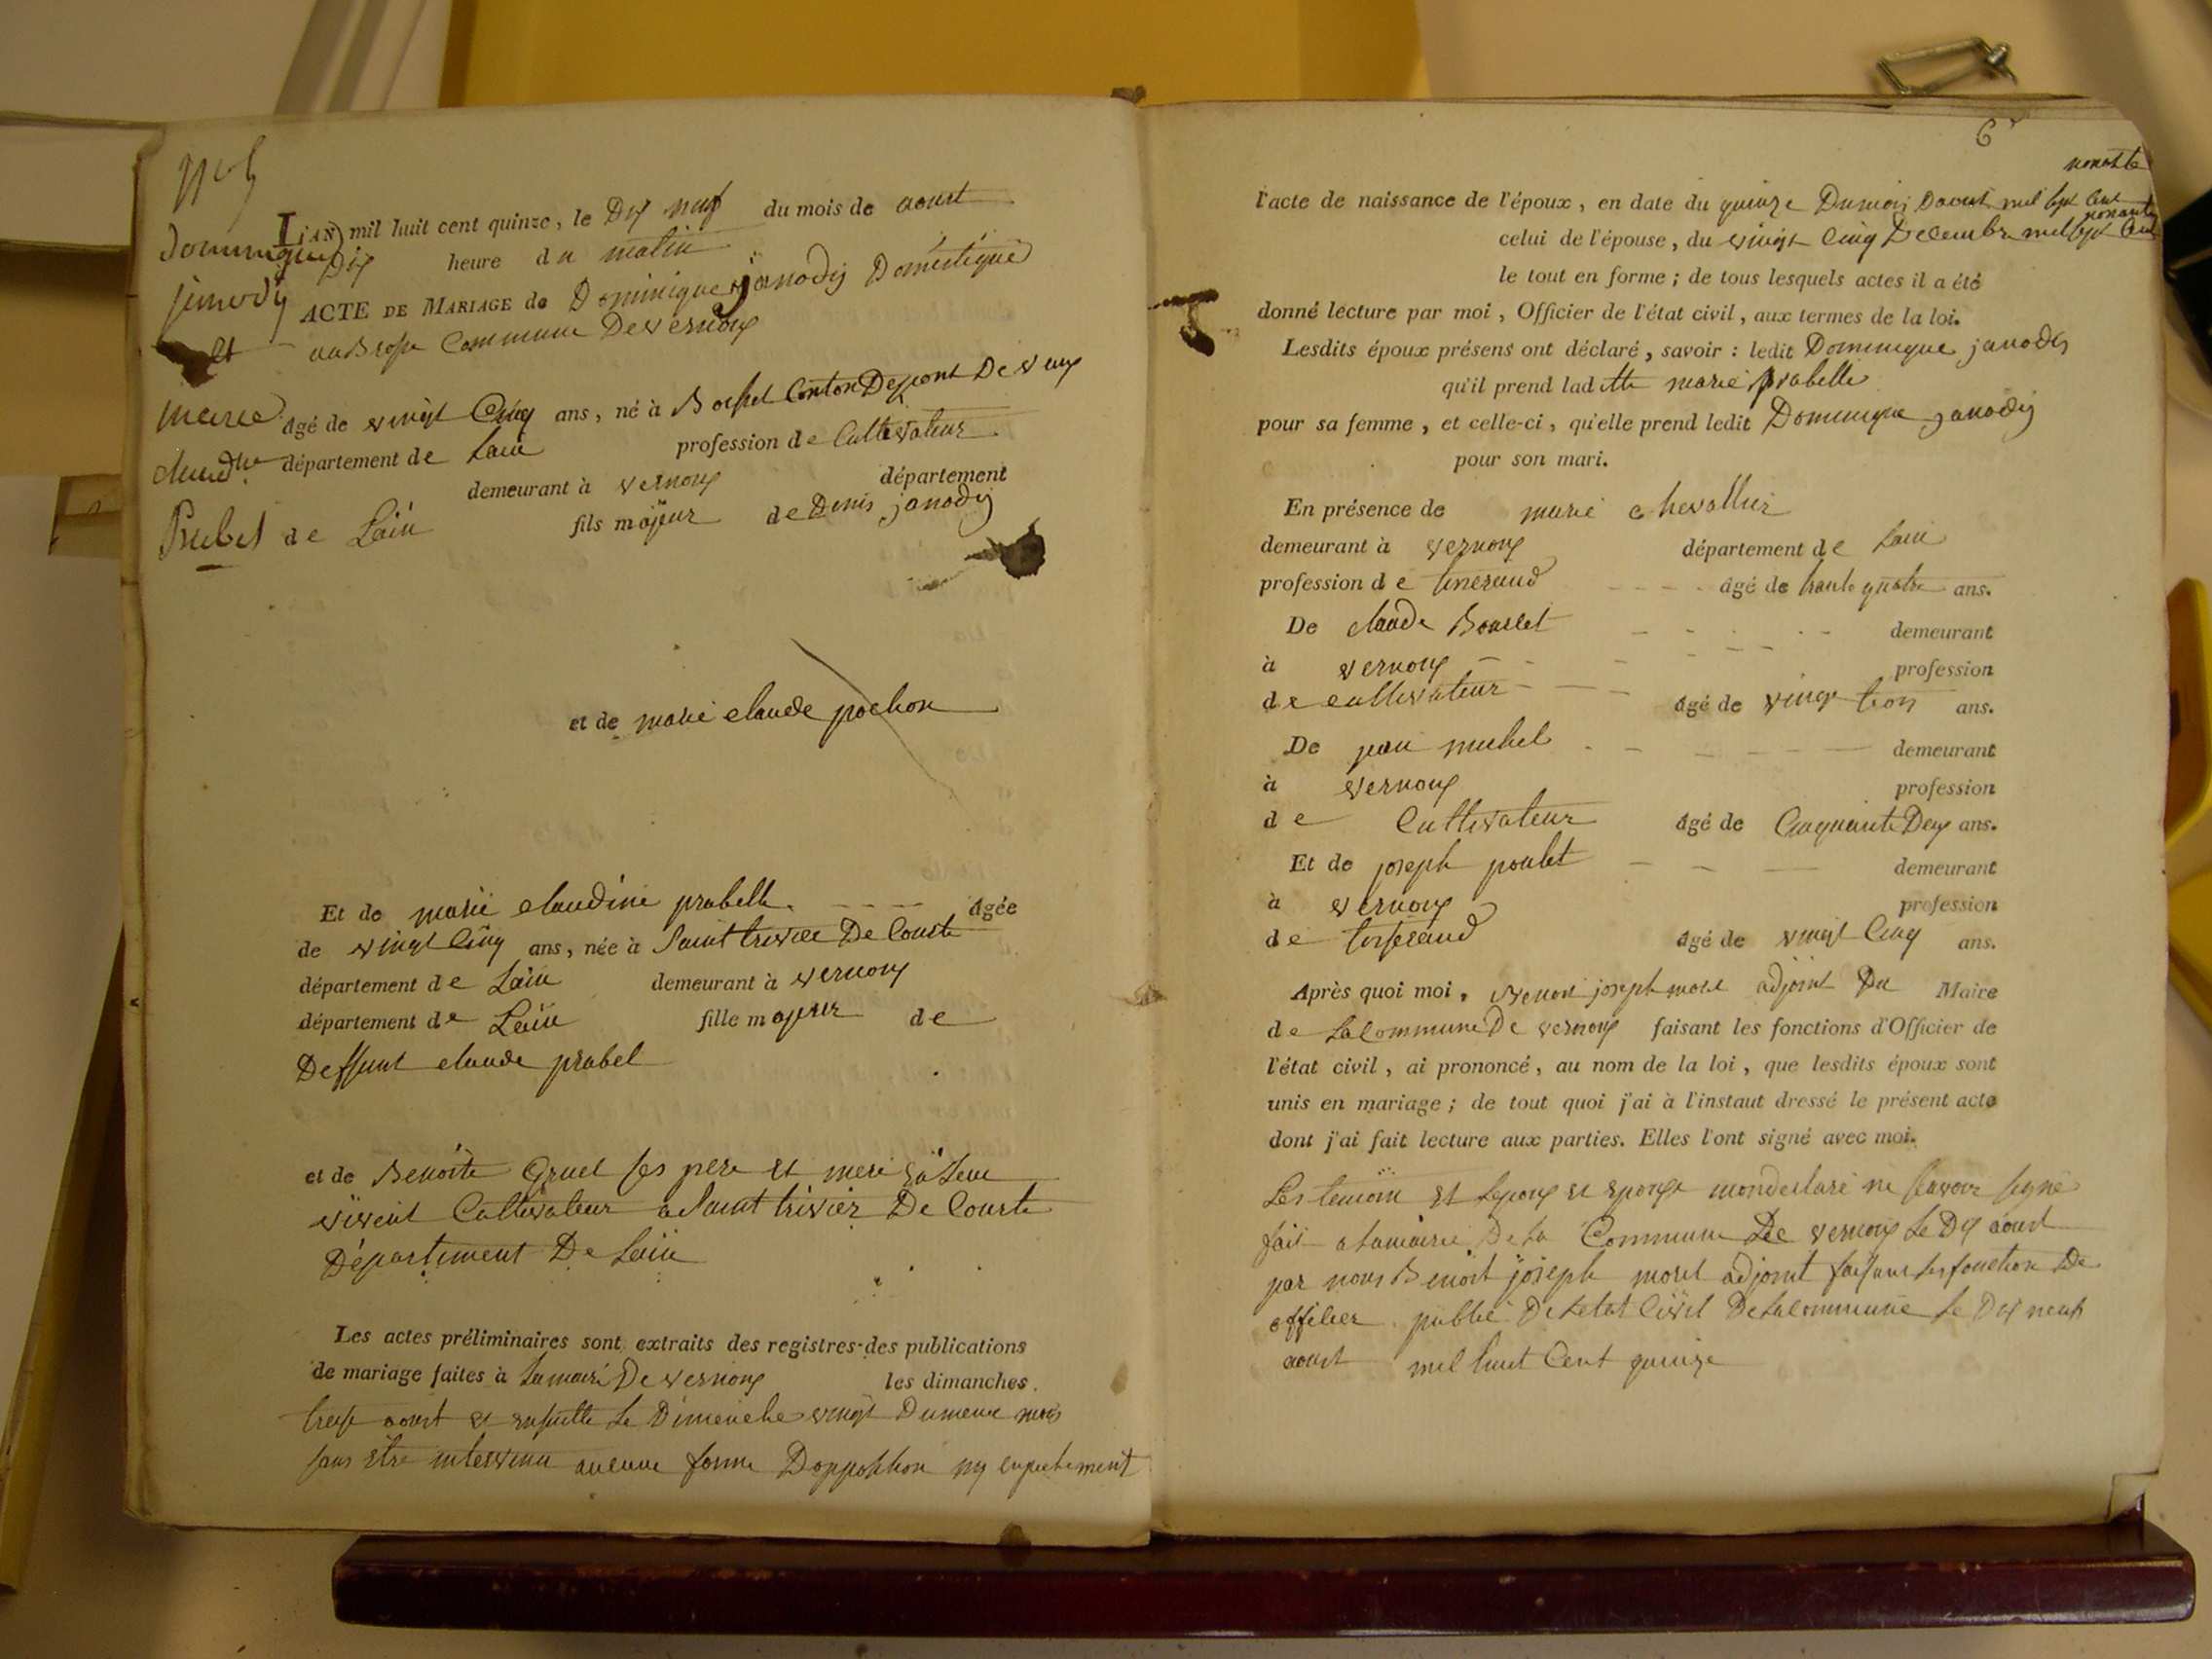 N° 5
Dominique
Janody
et
marie
claud.ne
Prabel
L'AN mil huit cent quinze, le Dix neuf du mois de aoust
Dix heure du matin
ACTE DE MARIAGE de Dominique janody Doméstique
Commune De vernoux
agé de vingt Cinq ans, né à Conton De pont De vaux
département de Lain profession de Cultivateur
demeurant à vernoux département
de Lain fils majeur de Denis janody
et de marie claude pochon
Et de marie claudine prabelle agée
de vingt Cinq ans, née à Saint trivier De Courte
département de Lain demeurant à vernoux
département de Lain fille majeur de
Deffunt claude prabel
et de Benoite Gruel ses pere et mere
vivent Cultivateur a Saint trivier De Courte
Département De Lain
Les actes préliminaires sont extraits des registres des publications
de mariage faites à Lamairi De vernoux les dimanches
treise aoust et ensuitte Le Dimenche vingt Dumeme mois
sans etre intervenu aucune forme Dopposition ny enpechement
6
nonante
l'acte de naissance de l'époux, en date du quinze Dumois Daoust mil sept Cent
nonante
celui de l'épouse, du vingt Cinq Decembre mil sept Cent
le tout en forme; de tous lesquels actes il a été
donné lecture par moi, Officier de l'état civil, aux termes de la loi.
Lesdits époux présens ont déclaré, savoir : ledit Dominique janody
qu'il prend laditte marie prabelle
pour sa femme, et celle-ci, qu'elle prend ledit Dominique janody
pour son mari.
En présence de marie chevallier
demeurant à vernoux département de Lain
profession de tinerand âgé de trante quatre ans.
De claude Bourlet demeurant
à vernoux profession
de cultivateur âgé de vingt trois ans.
De jean michel demeurant
à vernoux profession
de Cultivateur âgé de Cinquante Deux ans.
Et de joseph poulet demeurant
à vernoux profession
de tisserand âgé de vingt Cinq ans.
Après quoi moi, Benoit joseph morel adjoint Du Maire
de La Commune De vernoux faisant les fonctions d'Officier de
l'état civil, ai prononcé, au nom de la loi, que lesdits époux sont
unis en mariage; de tout quoi j'ai à l'instant dressé le présent acte
dont j'ai fait lecture aux parties. Elles l'ont signé avec moi.
Les temoin et Lepoux et epouse mondeclaré ne savoir signé
fait a Lamairie De La Commune De vernoux Le Dix aoust
par nous Benoit joseph morel adjoint faisant les fonction De
officier public De Letat Civil De La commune Le Dix neuf
aoust mil huit Cent quinze